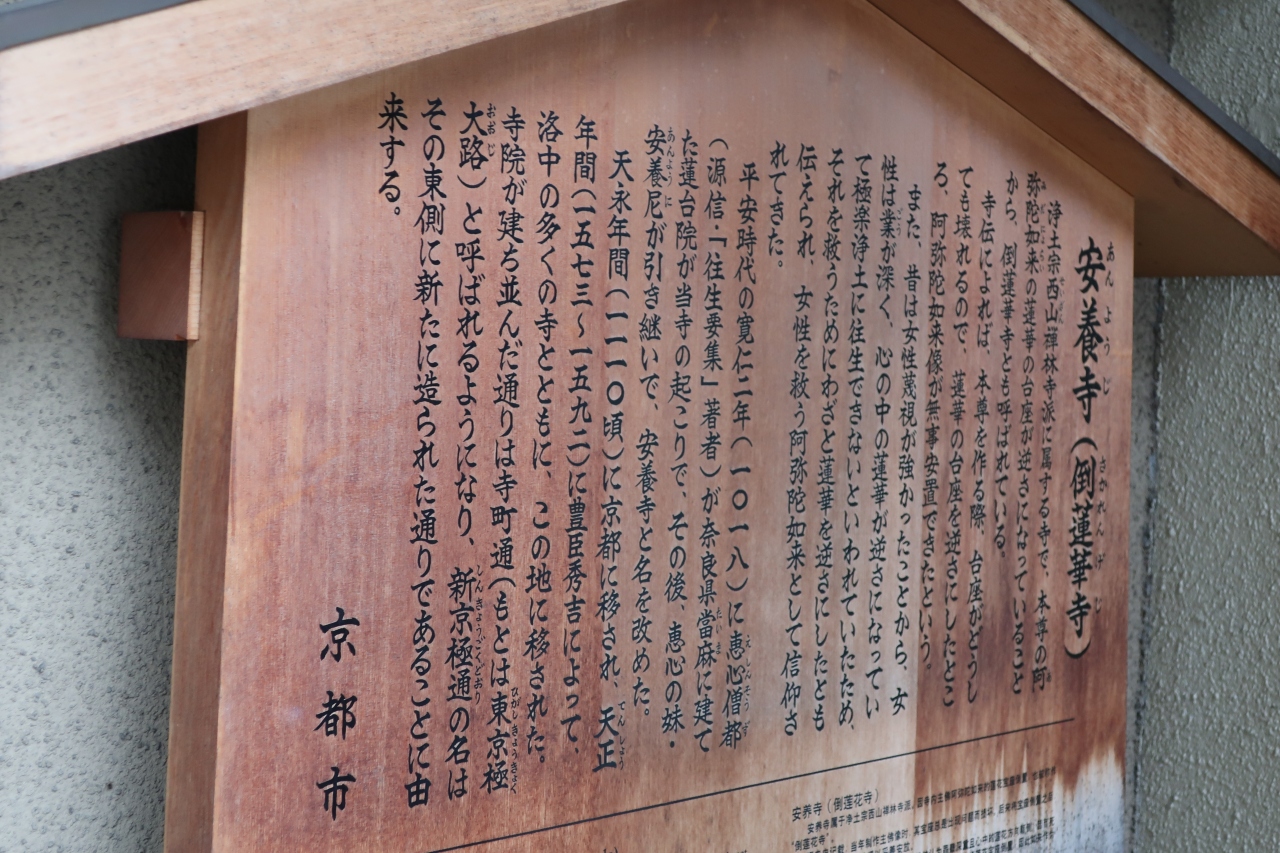 安養寺（倒蓮華寺）
浄土宗西山禅林寺派に属する寺で、本尊の阿
弥陀如来の蓮華の台座が逆さになっていること
から、倒蓮華寺とも呼ばれている。
寺伝によれば、本尊を作る際、台座がどうし
ても壊れるので、蓮華の台座を逆さにしたとこ
ろ、阿弥陀如来像が無事安置できたという。
また、昔は女性蔑視が強かったことから、女
性は業が深く、心の中の蓮華が逆さになってい
て極楽浄土に往生できないといわれていたため、
それを救うためにわざと蓮華を逆さにしたとも
伝えられ、女性を救う阿弥陀如来として信仰さ
れてきた。
平安時代の寛仁二年（一〇一八）に恵心僧都
（源信・「往生要集」著者）が奈良県當麻に建て
た蓮台院が当寺の起こりで、その後、恵心の妹・
安養尼が引き継いで、安養寺と名を改めた。
天永年間（一一一〇頃）に京都に移され、天正
年間（一五七三〜一五九二）に豊臣秀吉によって、
洛中の多くの寺とともに、この地に移された。
寺院が建ち並んだ通りは寺町通（もとは東京極
大路）と呼ばれるようになり、新京極通の名は
その東側に新たに造られた通りであることに由
来する。
京都市
安养寺（倒莲花寺）
安养寺属于净土宗西山禅林寺派。
"倒莲花寺"。